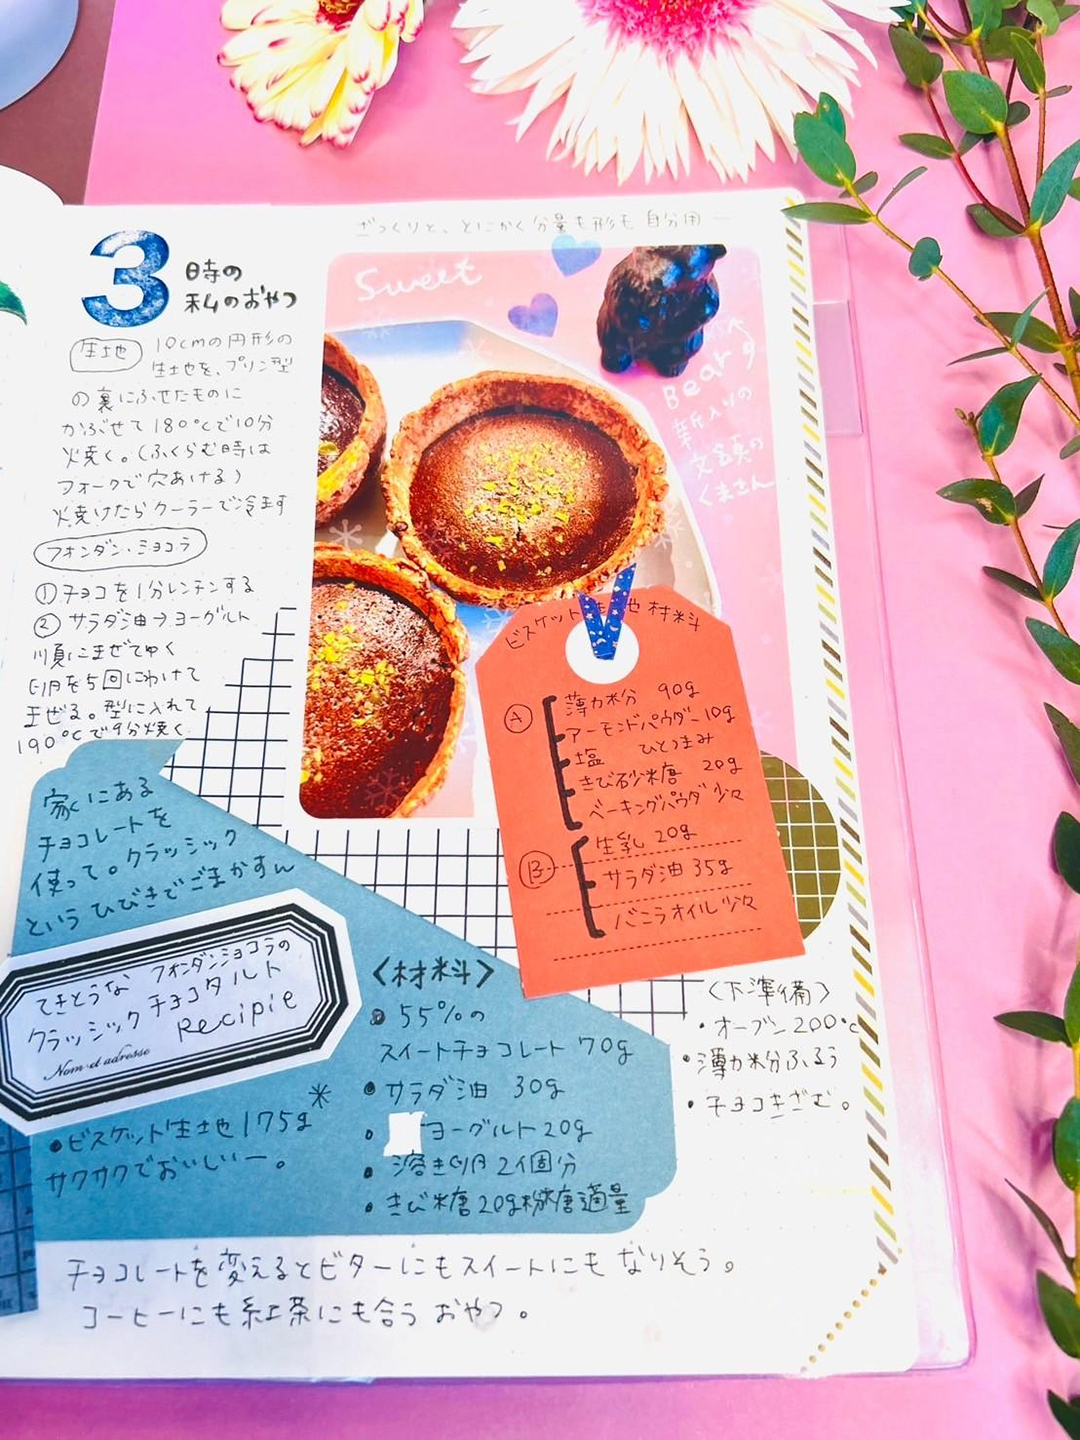 ざっくりと、とにかく分量も形も自分用ー
3
時の
私のおやつ
生地
10cmの円形の
生地を、プリン型
の裏にふせたものに
かぶせて180℃で10分
火焼く。(ふくらむ時は
フォークで穴あける)
火焼けたらクーラーで冷ます
フォンダン・ショコラ
①チョコを1分レンチンする
②サラダ油→ヨーグルト
順にまぜてゆく
卵を5回にわけて
まぜる。型に入れて
190℃で9分焼く
Sweet
Bear
新入りの
文鎮の
くまさん
ビスケット生地材料
A
薄力粉 90g
アーモンドパウダー10g
塩 ひとつまみ
きび砂糖 20g
ベーキングパウダ少々
B
生乳 20g
サラダ油 35g
バニラオイル少々
家にある
チョコレートを
使って。クラッシック
というひびきでごまかすん
てきとうな フォンダンショコラの
クラッシック チョコタルト
Recipie
Nom et adresse
・ビスケット生地175g
サクサクでおいしいー。
〈材料〉
・55%の
スイートチョコレート 70g
・サラダ油 30g
・ヨーグルト20g
・溶き卵 2個分
・きび糖20g粉糖適量
〈下準備〉
・オーブン200℃
・薄力粉ふるう
・チョコきざむ。
チョコレートを変えるとビターにもスイートにもなりそう。
コーヒーにも紅茶にも合うおやつ。